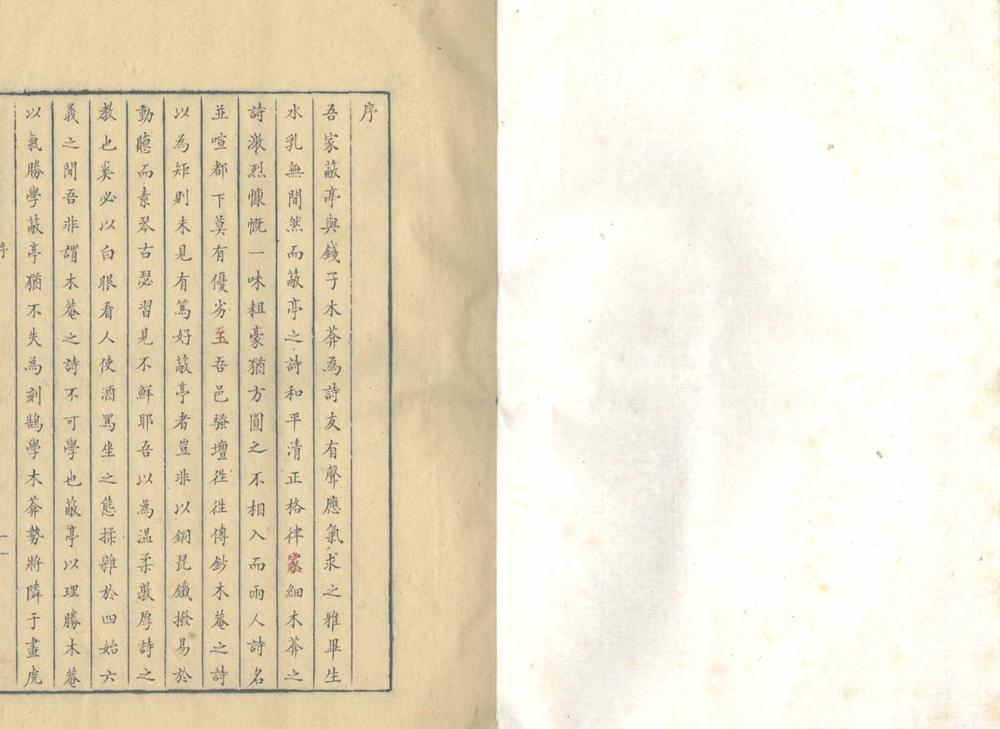 序
吾家蔽亭與錢子木菴為詩友有聲應氣求之雅畢生
水乳無間然而蔽亭之詩和平清正格律家細木菴之
詩激烈慷慨一味粗豪猶方圓之不相入而兩人詩名
並喧都下莫有優劣至吾邑騷壇徃徃傳鈔木菴之詩
以為矩則未見有篤好蔽亭者豈非以銅琵鐵撥易於
動聽而素琴古瑟習見不鮮耶吾以為温柔敦厚詩之
教也奚必以白眼看人使酒罵坐之態揉雜於四始六
義之間吾非謂木菴之詩不可學也蔽亭以理勝木菴
以氣勝學蔽亭猶不失為刻鵠學木菴勢將隣于畫虎
序
一